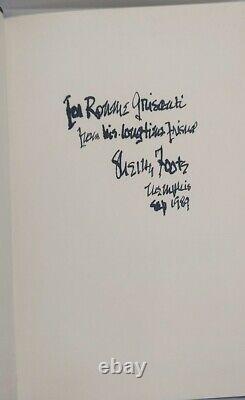 For Ronnie Grisanti
from his longtime friend
Shelby Foote
Memphis
Sep 1989
ebay.com